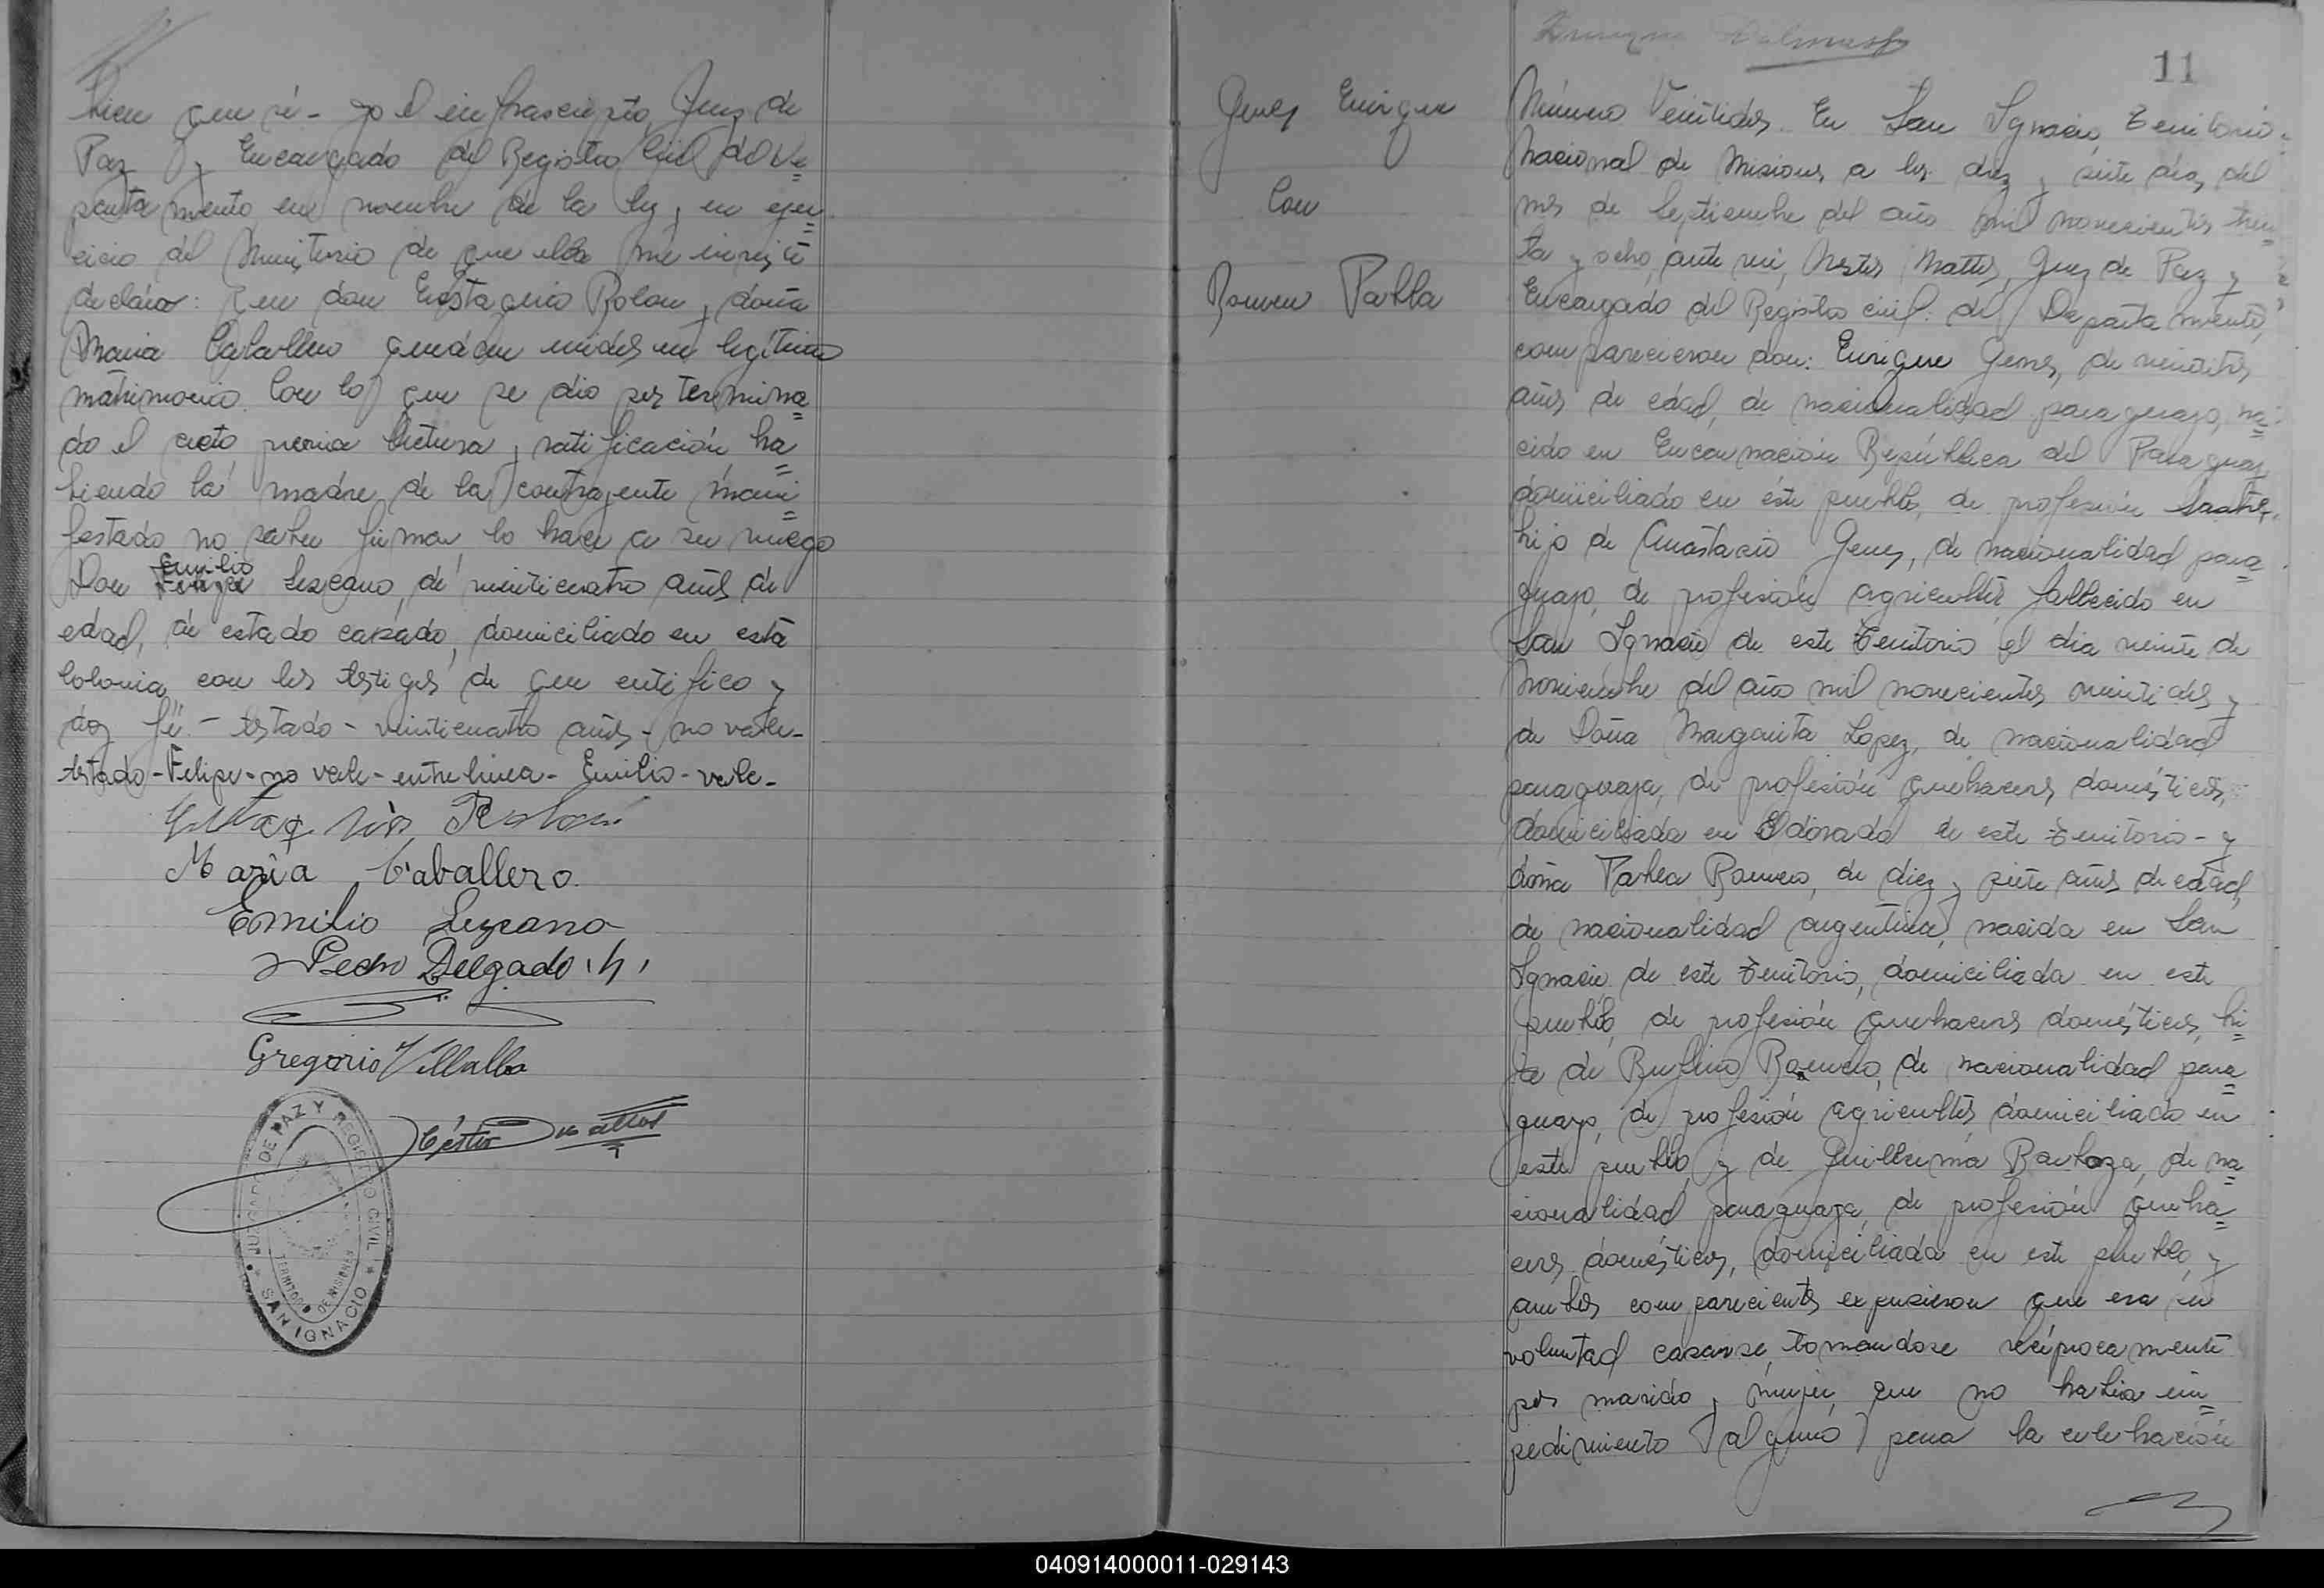 bien que sí - yo el infrascripto Juez de
Paz y Encargado del Registro Civil del De=
partamento en nombre de la ley y en ejer=
cicio del Ministerio de que ella me inviste
declaro: que don Eustaquio Rolon y doña
Maria Caballero quedan unidos en legitimo
matrimonio. Con lo que se dio por termina=
do el acto previa lectura y ratificación ha=
biendo la madre de la contrayente mani=
festado no saber firmar lo hace a su ruego
Emilio
Don Felipe Lezcano, de veinticuatro años de
edad, de estado casado, domiciliado en esta
Colonia con los testigos de que certifico y
doy fé - testado - veinticuatro años - no vale -
testado - Felipe - no vale - entre linea - Emilio - vale -
Eustaquio Rolon
Maria Caballero
Emilio Lezcano
Pedro Delgado (h)
Gregorio Villalba
Néstor Mattos
JUZGADO DE PAZ Y REGISTRO CIVIL
TERRITORIO DE MISIONES
* SAN IGNACIO *
11
Genes Enrique
Con
Romero Pabla
Número Veintidos. En San Ignacio, Territorio
Nacional de Misiones a los diez y siete dias del
mes de Septiembre del año mil novecientos trein=
ta y ocho, ante mi, Nestor Mattos, Juez de Paz y
Encargado del Registro civil del Departamento,
comparecieron don: Enrique Genes, de
años de edad, de nacionalidad paraguayo, na=
cido en Encarnación República del Paraguay
domiciliado en éste pueblo, de profesión sastre,
hijo de Anastacio Genes, de nacionalidad para=
guayo, de profesión agricultor, fallecido en
San Ignacio de este Territorio el dia veinte de
Noviembre del año mil novecientos veintidos y
de Doña Margarita Lopez, de nacionalidad
paraguaya, de profesión quehaceres domésticos,
domiciliada en Eldorado de este Territorio - y
doña Pabla Romero, de diez y siete años de edad,
de nacionalidad argentina, nacida en San
Ignacio de este Territorio, domiciliada en este
pueblo, de profesión quehaceres domésticos, hi=
ja de Rufino Romero, de nacionalidad para=
guayo, de profesión agricultor domiciliado en
este pueblo, y de Guillerma Barboza, de na=
cionalidad paraguaya, de profesión queha=
ceres domésticos, domiciliada en este pueblo, y
ambos comparecientes expusieron que era su
voluntad casarse, tomandose reciprocamente
por marido y mujer, que no habia im=
pedimiento alguno para la celebración
040914000011-029143